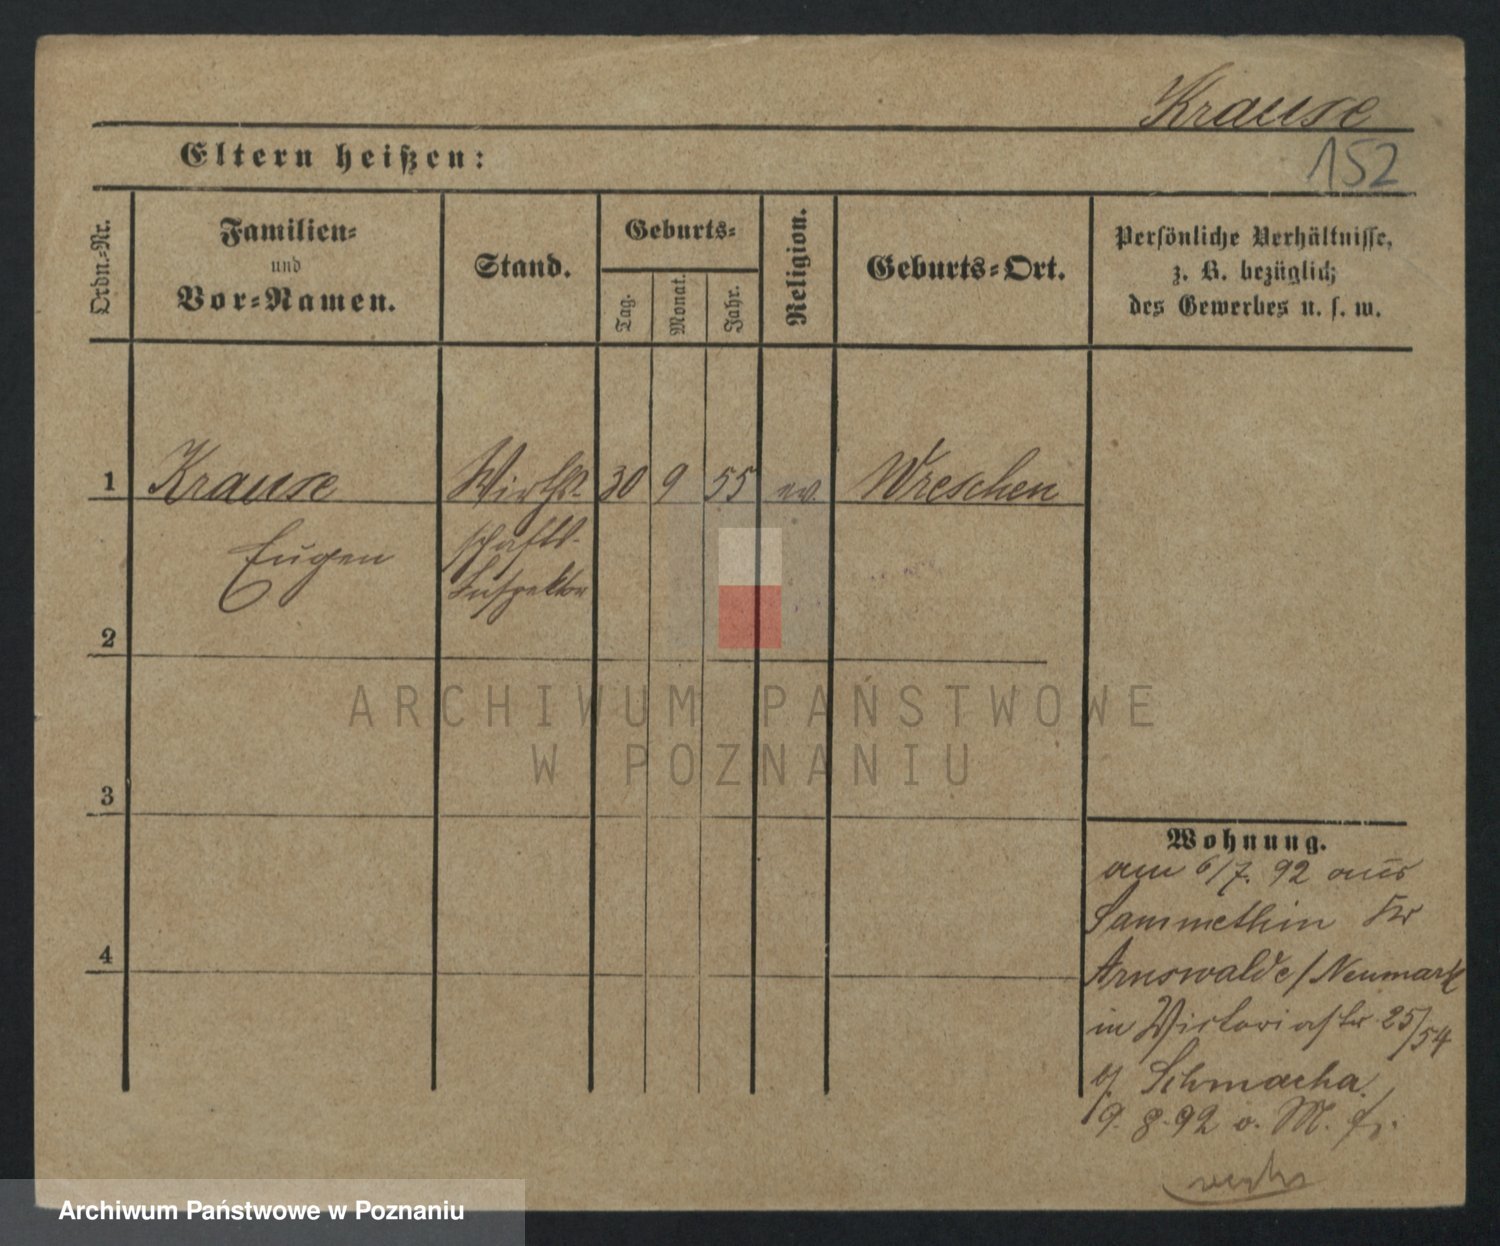 Krause
152
Eltern heißen:
Ordn.-Nr.
Familien-
und
Vor-Namen.
Stand.
Geburts-
Tag.
Monat.
Jahr.
Religion.
Geburts-Ort.
Persönliche Verhältnisse,
z. B. bezüglich
des Gewerbes u. s. w.
1 Krause Wirth- 30 9 55 ev. Wreschen
Eugen schafts-
Inspektor
2
3
4
Wohnung.
am 6/7. 92 aus
Sammethin Kr
Arnswalde/Neumark
in Victoriastr 25/54
Schmacha
9. 8. 92 v. M.
ARCHIWUM PAŃSTWOWE
W POZNANIU
Archiwum Państwowe w Poznaniu